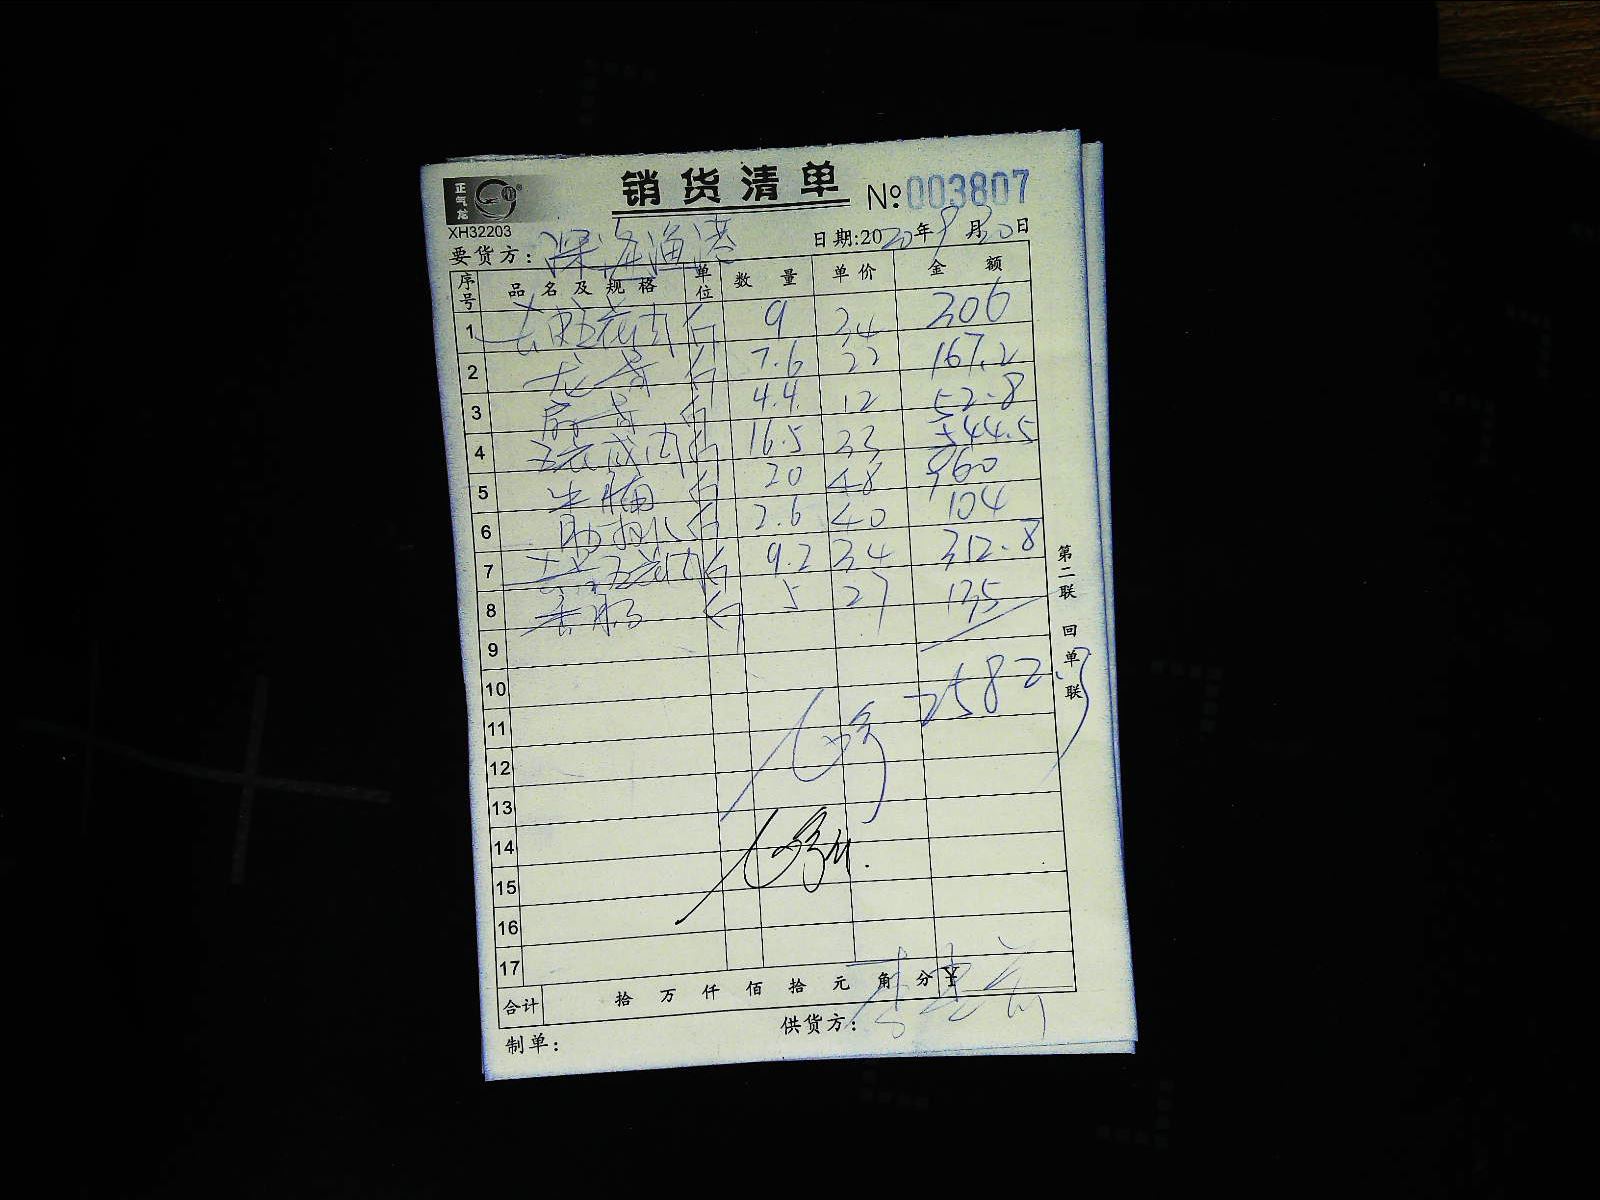 正气龙
销货清单 №003807
XH32203
要货方：深海渔港 日期:2020年9月20日
序号 品名及规格 单位 数量 单价 金额
1 五花肉 斤 9 34 306
2 龙骨 斤 7.6 22 167.2
3 扇骨 斤 4.4 12 52.8
4 五花咸肉 斤 16.5 33 544.5
5 牛腩 斤 20 48 960
6 斤 2.6 40 104
7 五花肉 斤 9.2 34 312.8
8 香肠 斤 5 27 135
9
10 2582.3
11
12
13
14
15
16
17
合计 拾 万 仟 佰 拾 元 角 分
制单： 供货方：
第二联 回单联